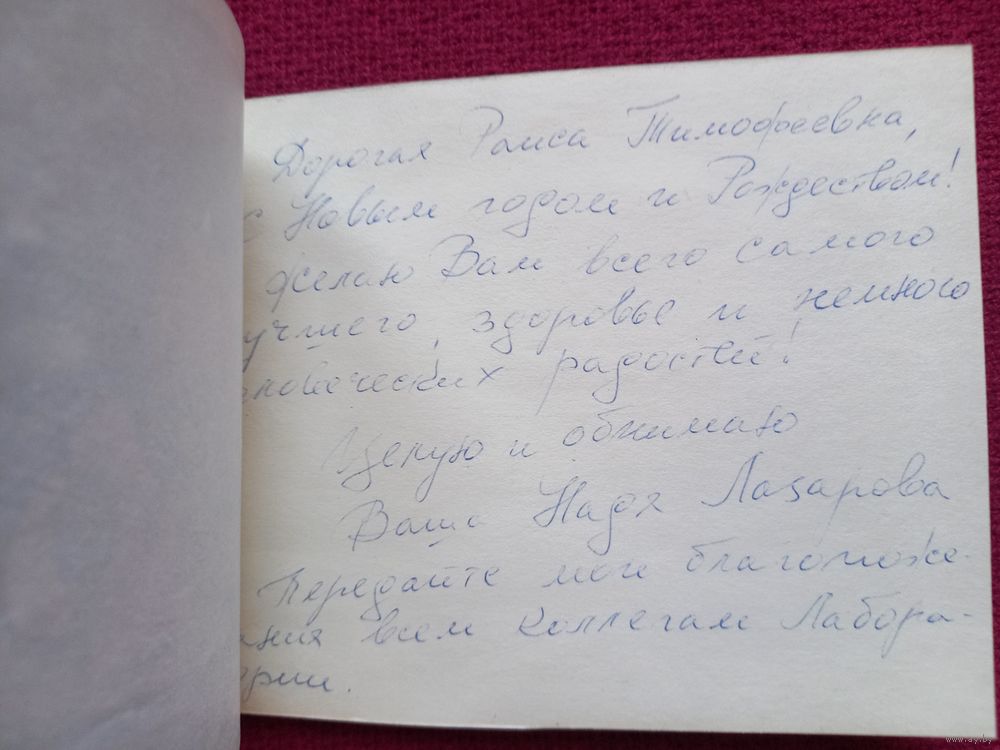 Дорогая Раиса Тимофеевна,
с Новым годом и Рождеством!
Желаю Вам всего самого
учшего, здоровье и немного
еловеческих радостей!
Целую и обнимаю
Ваша Надя Лазарова
Передайте мои благопоже-
ания всем коллегам Лабора-
ории.
www.ay.by